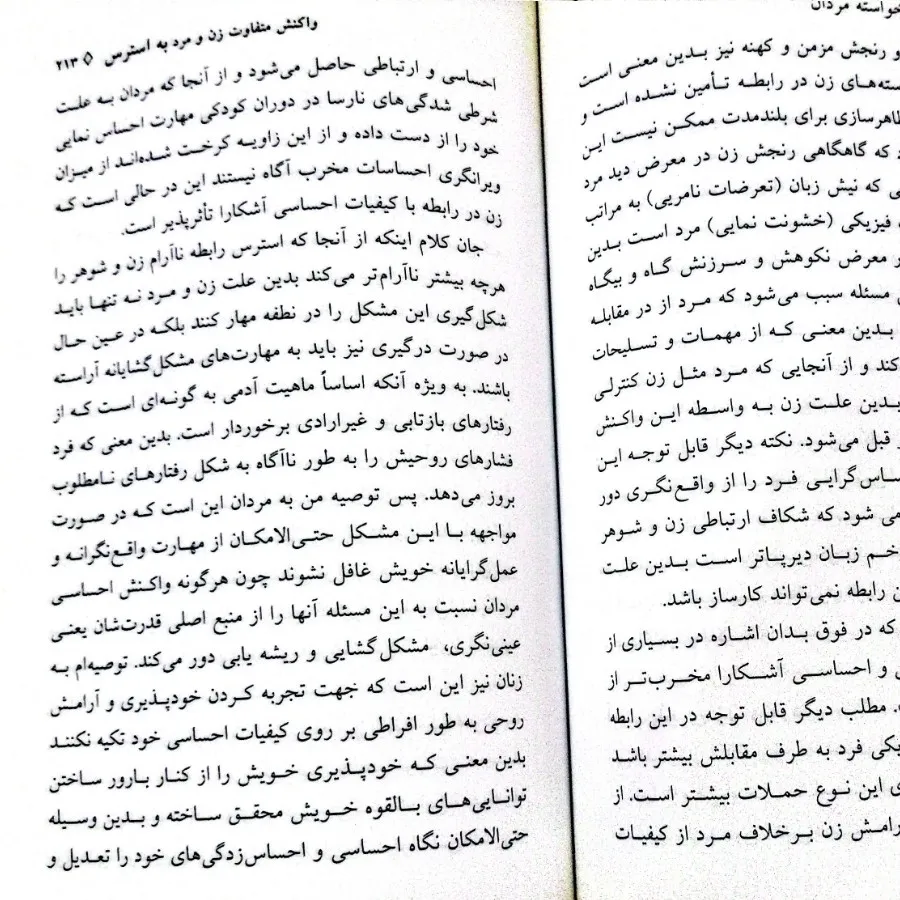 خواسته مردان
و رنجش مزمن و کهنه نیز بدین معنی است
سته‌های زن در رابطه تأمین نشده است و
ظاهرسازی برای بلندمدت ممکن نیست این
د که گاهگاهی رنجش زن در معرض دید مرد
ی که نیش زبان (تعرضات نامریی) به مراتب
فیزیکی (خشونت نمایی) مرد است بدین
ر معرض نکوهش و سرزنش گاه و بیگاه
مسئله سبب می‌شود که مرد از در مقابله
بدین معنی که از مهمات و تسلیحات
کند و از آنجایی که مرد مثل زن کنترلی
بدین علت زن به واسطه این واکنش
قبل می‌شود. نکته دیگر قابل توجه این
ساس‌گرایی فرد را از واقع‌نگری دور
می شود که شکاف ارتباطی زن و شوهر
خم زبان دیرپاتر است بدین علت
ن رابطه نمی‌تواند کارساز باشد.
که در فوق بدان اشاره در بسیاری از
و احساسی آشکارا مخرب‌تر از
. مطلب دیگر قابل توجه در این رابطه
یکی فرد به طرف مقابلش بیشتر باشد
ی این نوع حملات بیشتر است. از
رامش زن برخلاف مرد از کیفیات
واکنش متفاوت زن و مرد به استرس ◊ ۲۱۳
احساسی و ارتباطی حاصل می‌شود و از آنجا که مردان به علت
شرطی شدگی‌های نارسا در دوران کودکی مهارت احساس نمایی
خود را از دست داده و از این زاویه کرخت شده‌اند از میزان
ویرانگری احساسات مخرب آگاه نیستند این در حالی است که
زن در رابطه با کیفیات احساسی آشکارا تأثرپذیر است.
جان کلام اینکه از آنجا که استرس رابطه ناآرام زن و شوهر را
هرچه بیشتر ناآرام‌تر می‌کند بدین علت زن و مرد نه تنها باید
شکل‌گیری این مشکل را در نطفه مهار کنند بلکه در عین حال
در صورت درگیری نیز باید به مهارت‌های مشکل‌گشایانه آراسته
باشند. به ویژه آنکه اساساً ماهیت آدمی به گونه‌ای است که از
رفتارهای بازتابی و غیرارادی برخوردار است. بدین معنی که فرد
فشارهای روحیش را به طور ناآگاه به شکل رفتارهای نامطلوب
بروز می‌دهد. پس توصیه من به مردان این است که در صورت
مواجهه با این مشکل حتی‌الامکان از مهارت واقع‌نگرانه و
عمل‌گرایانه خویش غافل نشوند چون هرگونه واکنش احساسی
مردان نسبت به این مسئله آنها را از منبع اصلی قدرت‌شان یعنی
عینی‌نگری، مشکل‌گشایی و ریشه یابی دور می‌کند. توصیه‌ام به
زنان نیز این است که جهت تجربه کردن خودپذیری و آرامش
روحی به طور افراطی بر روی کیفیات احساسی خود تکیه نکنند
بدین معنی که خودپذیری خویش را از کنار بارور ساختن
توانایی‌های بالقوه خویش محقق ساخته و بدین وسیله
حتی‌الامکان نگاه احساسی و احساس‌زدگی‌های خود را تعدیل و